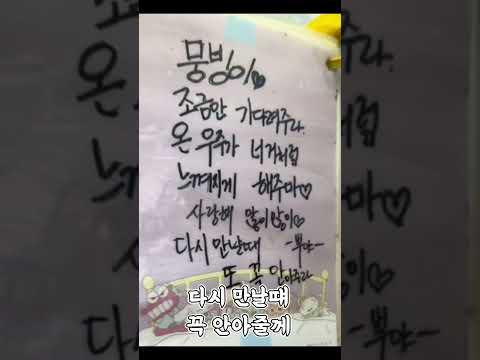 뭉빙이♡
조금만 기다려주라.
온 우주가 너거처럼
느껴지게 해주마♡
사랑해 많이많이♡
다시 만날때 -뿌야-
또 꼭 안아주라
다시 만날떄
꼭 안아줄게